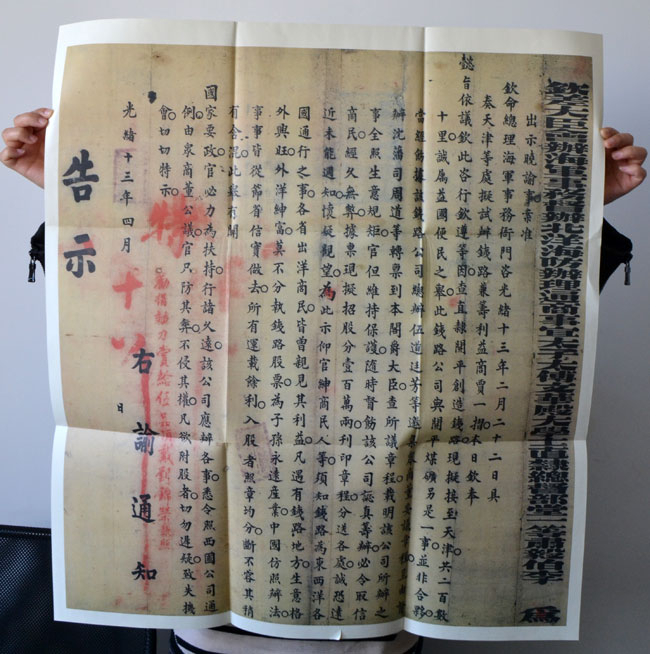 欽差大臣會辦海軍事務督辦北洋海防辦理通商事宜太子太傅文華殿大學士直隸總督部堂一等肅毅伯李 為
出示曉諭事案准
欽命總理海軍事務衙門咨光緒十三年二月二十二日具
奏天津等處擬試辦鐵路兼籌利益商賈一摺本日欽奉
懿旨依議欽此咨行欽遵等因查直隸開平創造鐵路現擬接至天津共二百數
十里誠屬益國便民之舉此鐵路公司與開平煤礦另是一事並非合夥
當經飭據該鐵路公司總辦伍道廷芳等邀集衆商董妥議章程並由督
辦沈藩司周道等轉稟到本閣爵大臣查所議章程截明該公司所辦之
事全照生意規矩官但維持保護隨時督飭該公司認真籌辦必令取信
商民經久無弊據稟現擬招股分壹百萬兩刊印章程分送各處誠恐遠
近未能週知懷疑觀望為此示仰官紳商民人等須知鐵路為東西洋各
國通行之事各省出洋商民皆曾親見其利益凡遇有鐵路地方生意格
外興旺外洋紳富莫不分執鐵路股票為子孫永遠產業中國仿照辦法
事事皆從節省信實做去所有運載餘利入股者照章均分斷不容其稍
有含混此繫有關
國家要政官必力為扶持行諸久遠該公司應辦各事悉令照西國公司通
例由衆商董公議官只防其弊不侵其權凡欲附股者切勿遲疑致失機
會切切特示
特
右諭通知
光緒十三年四月 十八 日
告示